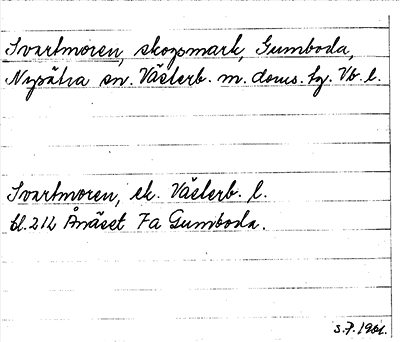 Svartmoren, skogsmark, Gumboda,
Nysätra sn. Västerb. m. doms. tg. Vb. l.
Svartmoren, ek. Västerb. l.
bl. 21 L Ånäset 7a Gumboda.
S.F. 1961.